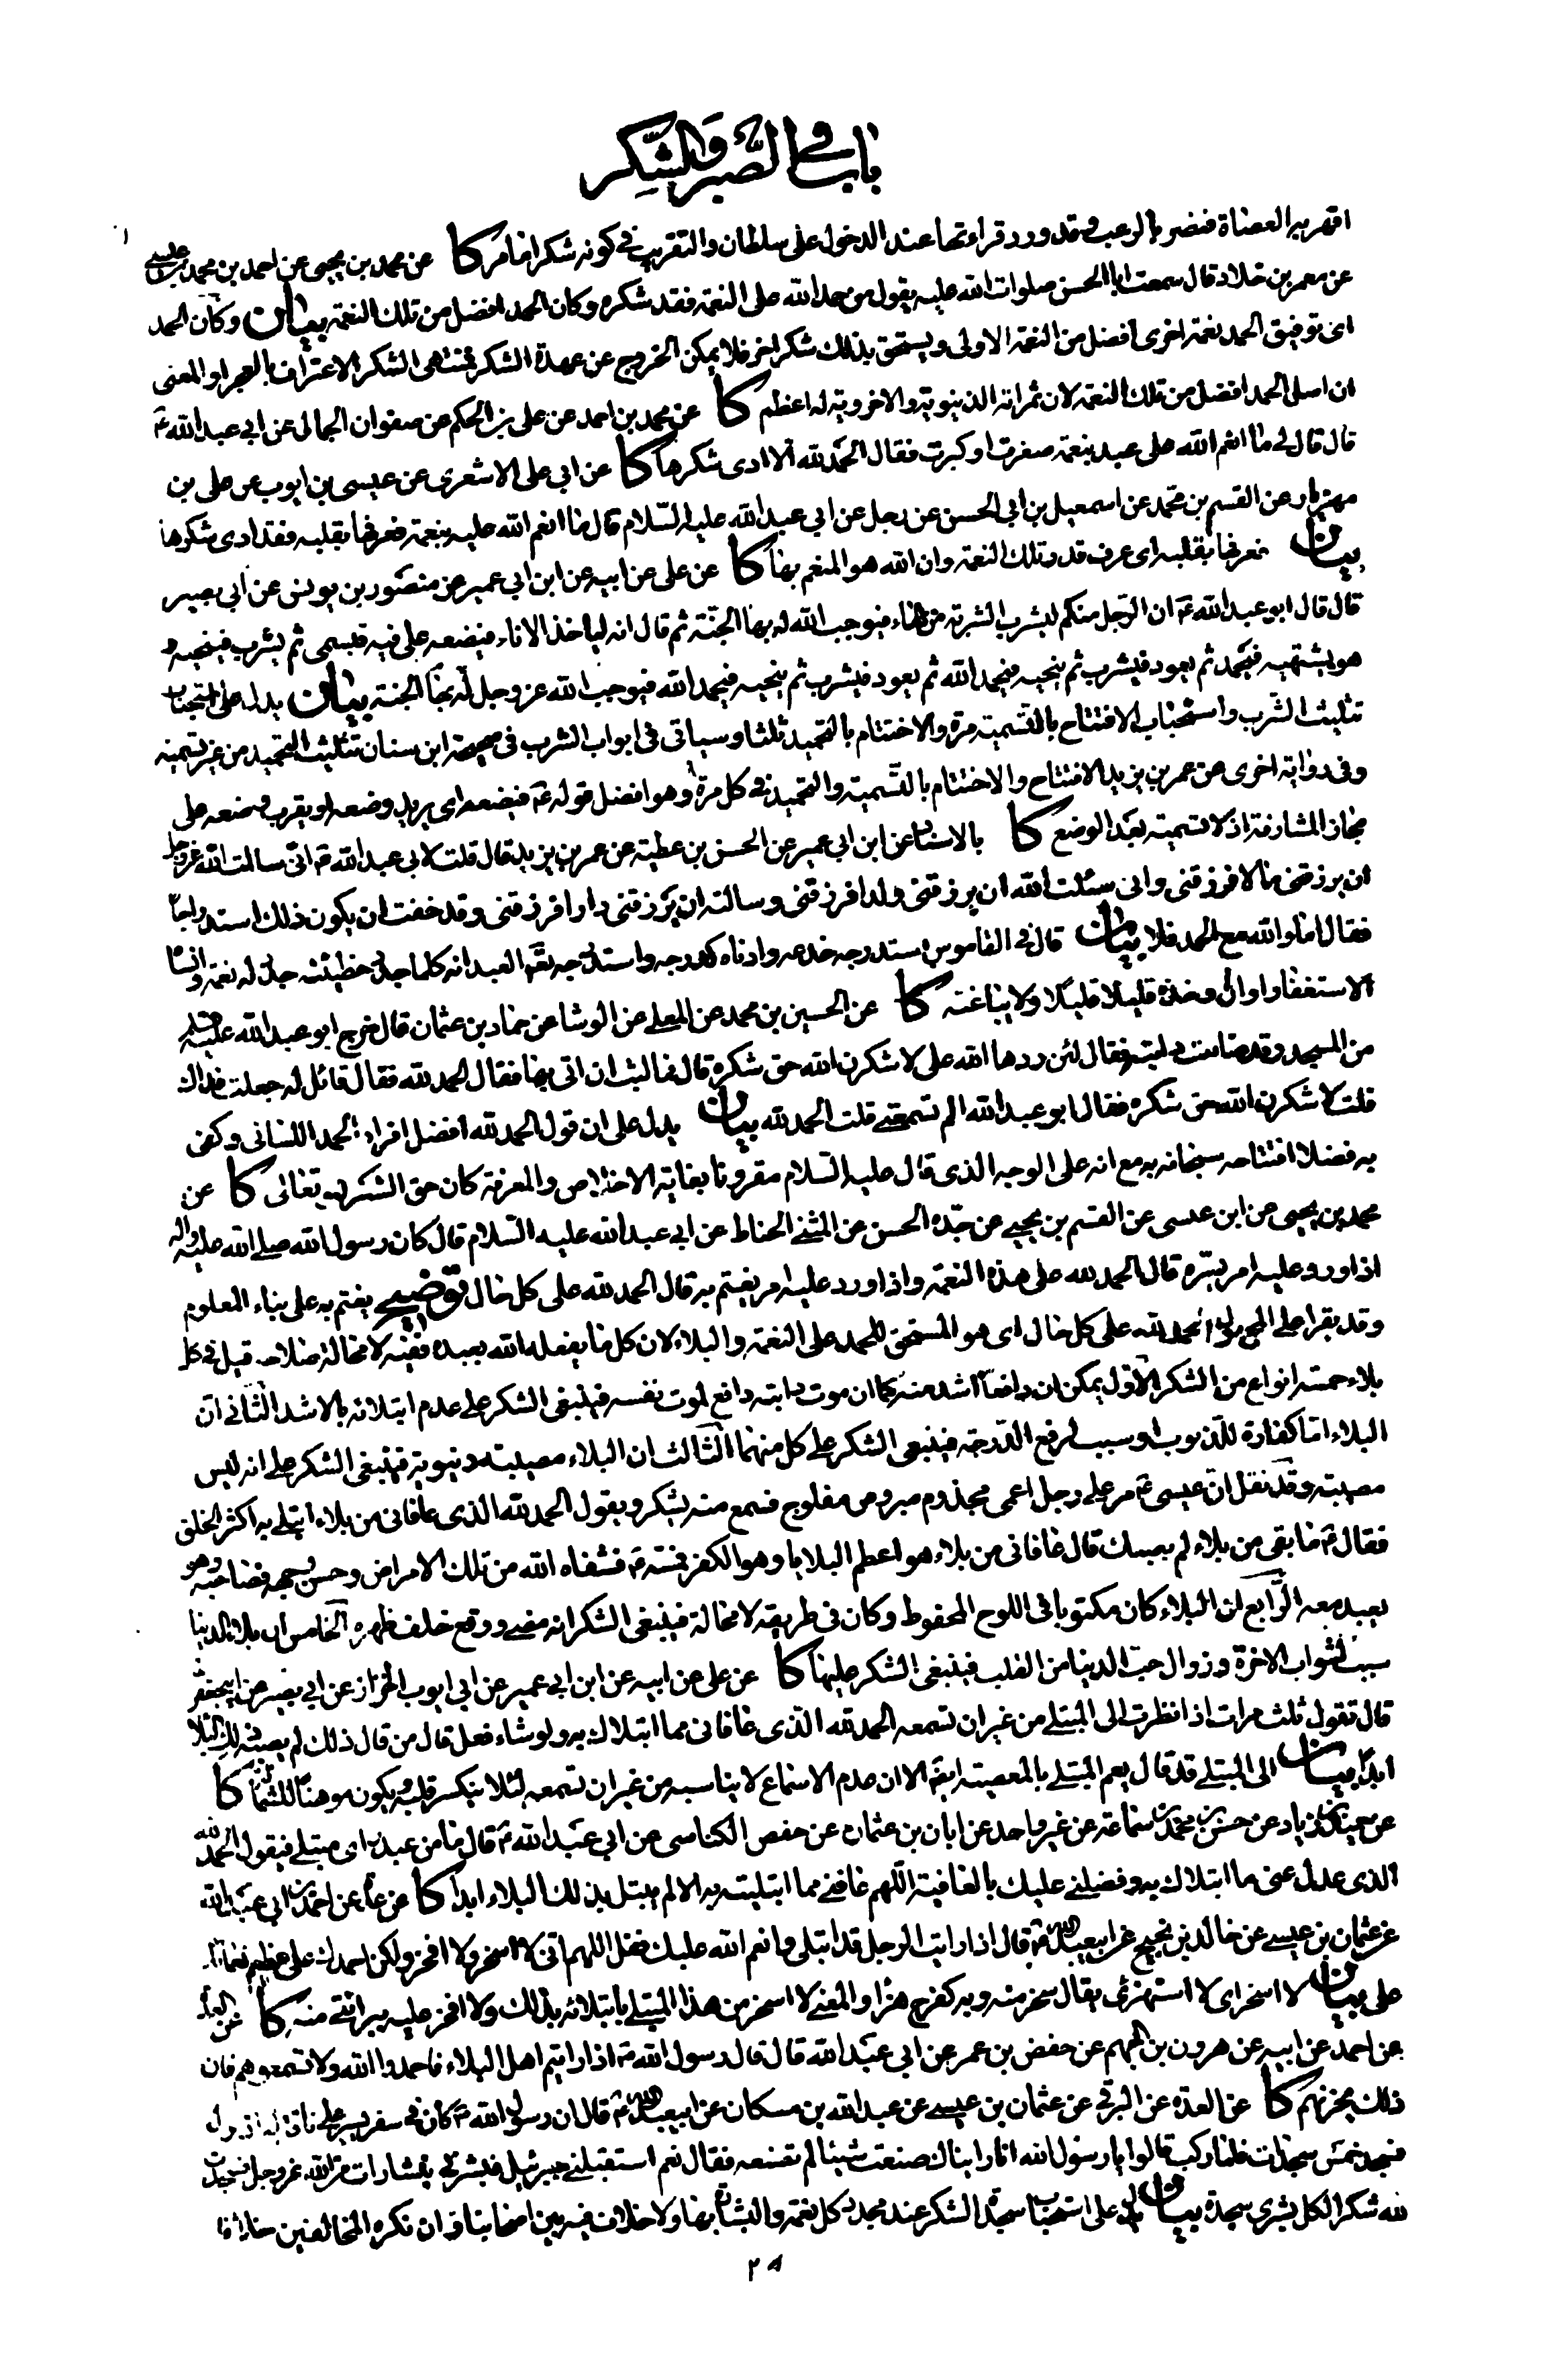 باب في الصبر والشكر
اقهر به العصاة فنصر بالرعب وقد ورد قراءتها عند الدخول على سلطان والتقريب في كونه شكرا فامر كا عن محمد بن يحيى عن احمد بن محمد بن عيسى
عن معمر بن خلاد قال سمعت ابا الحسن صلوات الله عليه يقول من حمد الله على النعمة فقد شكره وكان الحمد افضل من تلك النعمة بيان وكان الحمد
اى توفيق الحمد نعمة اخرى افضل من النعمة الاولى ويستحق بذلك شكرا اخر فلا يمكن الخروج عن عهدة الشكر فمنتهى الشكر الاعتراف بالعجز او المعنى
ان اصل الحمد افضل من تلك النعمة لان ثمراته الدنيوية والاخروية له اعظم كا عن محمد بن احمد عن على بن الحكم عن صفوان الجمال عن ابي عبد الله ع
قال قال لي ما انعم الله على عبد بنعمة صغرت او كبرت فقال الحمد لله الا ادى شكرها كا عن ابي على الاشعرى عن عيسى بن ايوب عن على بن
مهزيار عن القسم بن محمد عن اسمعيل بن ابي الحسن عن رجل عن ابي عبد الله عليه السلام قال ما انعم الله عليه بنعمة فعرفها بقلبه فقد ادى شكرها
بيان فعرفها بقلبه اى عرف قدر تلك النعمة وان الله هو المنعم بها كا عن على عن ابيه عن ابن ابي عمير عن منصور بن يونس عن ابي بصير
قال قال ابو عبد الله ع ان الرجل منكم ليشرب الشربة من الماء فيوجب الله له بها الجنة ثم قال انه لياخذ الاناء فيضعه على فيه فيسمى ثم يشرب فينحيه و
هو يشتهيه فيحمد ثم يعود فيشرب ثم ينحيه فيحمد الله ثم يعود فيشرب ثم ينحيه فيحمد الله فيوجب الله عز وجل له بها الجنة بيان يدل على استحباب
تثليث الشرب واستحباب الافتتاح بالتسمية مرة والاختتام بالتحميد ثلثا وسياتى فى ابواب الشرب فى صحيحة ابن سنان تثليث التحميد من غير تسمية
وفى رواية اخرى عن عمر بن يزيد الافتتاح والاختتام بالتسمية والتحميد في كل مرة وهو افضل قوله ع فيضعه اى يريد وضعه او يقرب وضعه على
مجاز المشارفة اذ لا تسمية بعد الوضع كا بالاسناد عن ابن ابي عمير عن الحسن بن عطية عن عمر بن يزيد قال قلت لابى عبد الله ع انى سالت الله عز وجل
ان يرزقنى مالا فرزقنى وانى سئلت الله ان يرزقنى ولدا فرزقنى وسالته ان يرزقنى دارا فرزقنى وقد خفت ان يكون ذلك استدراجا
فقال اما والله مع الحمد فلا بيان قال في القاموس استدرجه خدعه وادناه كدرجه واستدراجه تعالى العبد انه كلما جدد خطيئة جدد له نعمة وانساه
الاستغفار او ان ياخذه قليلا قليلا ولا يباغته كا عن الحسين بن محمد عن المعلى عن الوشا عن حماد بن عثمان قال خرج ابو عبد الله عليه السلام
من المسجد وقد ضاعت دابته فقال لئن ردها الله على لاشكرن الله حق شكره قال فما لبث ان اتى بها فقال الحمد لله فقال قائل له جعلت فداك
قلت لاشكرن الله حق شكره فقال ابو عبد الله الم تسمعنى قلت الحمد لله بيان يدل على ان قول الحمد لله افضل افراد الحمد اللسانى وكفى
به فضلا افتتاحه سبحانه به مع انه على الوجه الذى قال عليه السلام مقرونا بغاية الاخلاص والمعرفة كان حق الشكر له تعالى كا عن
محمد بن يحيى عن ابن عيسى عن القسم بن يحيى عن جده الحسن عن المثنى الحناط عن ابي عبد الله عليه السلام قال كان رسول الله صلى الله عليه واله
اذا ورد عليه امر يسره قال الحمد لله على هذه النعمة واذا ورد عليه امر يغتم به قال الحمد لله على كل حال توضيح يغتم به على بناء المعلوم
وقد يقرا على المجهول الحمد لله على كل حال اى هو المستحق للحمد على النعمة والبلاء لان كل ما يفعله الله بعبده ففيه لا محالة صلاحه قيل في كل
بلاء خمسة انواع من الشكر الاول يمكن ان دافعا اشد منه كما ان موت دابته دافع لموت نفسه فينبغى الشكر على عدم ابتلائه بالاشد الثانى ان
البلاء اما كفارة للذنوب او سبب لرفع الدرجة فينبغى الشكر على كل منهما الثالث ان البلاء مصيبته دنيوية فينبغى الشكر على انه ليس
مصيبته وقد نقل ان عيسى ع مر على رجل اعمى مجذوم مبروص مفلوج فسمع منه يشكر ويقول الحمد لله الذى عافانى من بلاء ابتلى به اكثر الخلق
فقال ع ما بقى من بلاء لم يصبك قال عافانى من بلاء هو اعظم البلايا وهو الكفر فمسه ع فشفاه الله من تلك الامراض وحسن وجهه فصاحبه وهو
يعبد معه الرابع ان البلاء كان مكتوبا فى اللوح المحفوظ وكان فى طريقه لا محالة فينبغى الشكر انه مضى ووقع خلف ظهره الخامس ان بلاء الدنيا
سبب لثواب الاخرة وزوال حب الدنيا من القلب فينبغى الشكر عليها كا عن على عن ابيه عن ابن ابي عمير عن ابي ايوب الخزاز عن ابي بصير عن ابي جعفر ع
قال تقول ثلث مرات اذا نظرت الى المبتلى من غير ان تسمعه الحمد لله الذى عافانى مما ابتلاك به ولو شاء فعل قال من قال ذلك لم يصبه ذلك البلاء
ابدا بيان الى المبتلى قد قال يعم المبتلى بالمعصية ايضا الا ان عدم الاسماع لا يناسبه من غير ان تسمعه لئلا ينكسر قلبه ويكون موهنا للشماتة كا
عن حميد بن زياد عن حسن بن محمد بن سماعة عن غير واحد عن ابان بن عثمان عن حفص الكناسى عن ابي عبد الله ع قال ما من عبد راى مبتلى فيقول الحمد لله
الذى عدل عنى ما ابتلاك به وفضلنى عليك بالعافية اللهم عافنى مما ابتليته به الا لم يبتل بذلك البلاء ابدا كا عن عدة عن احمد بن ابي عبد الله
عن عثمان بن عيسى عن خالد بن نجيح عن ابي عبد الله ع قال اذا رايت الرجل قد ابتلى وانعم الله عليك فقل اللهم انى لا اسخر ولا افخر ولكن احمدك على عظيم نعمائك
على بيان لا اسخر اى لا استهزئ يقال سخر منه وبه كفرح هزا والمعنى لا اسخر من هذا المبتلى بابتلائه بذلك ولا افخر عليه ببرائتى منه كا عن العدة
عن احمد عن ابيه عن هرون بن الجهم عن حفص بن عمر عن ابي عبد الله قال قال رسول الله ص اذا رايتم اهل البلاء فاحمدوا الله ولا تسمعوهم فان
ذلك يحزنهم كا عن العدة عن البرقى عن عثمان بن عيسى عن عبد الله بن مسكان عن ابي عبد الله ع قال ان رسول الله ص كان في سفر يسير على ناقة له اذ نزل
فسجد خمس سجدات فلما ركب قالوا يا رسول الله انا رايناك صنعت شيئا لم تصنعه فقال نعم استقبلنى جبرئيل فبشرنى بشارات من الله عز وجل فسجدت
لله شكرا لكل بشرى سجدة بيان يدل على استحباب سجدة الشكر عند تجدد كل نعمة والبشارة بها ولا خلاف فيه بين اصحابنا وان نكره المخالفين خلافا